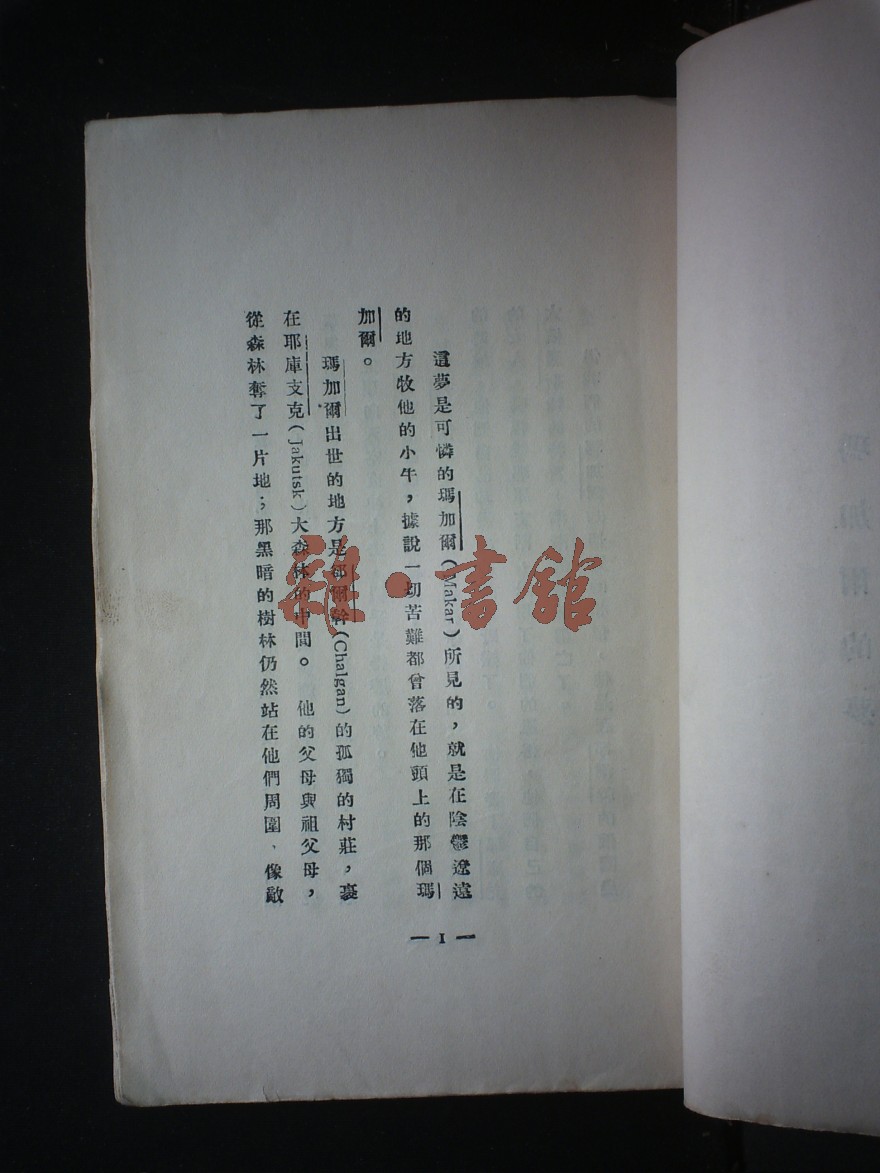 這夢是可憐的瑪加爾(Makar)所見的，就是在陰鬱遼遠
的地方牧他的小牛，據說一切苦難都曾落在他頭上的那個瑪
加爾。
瑪加爾出世的地方是都爾幹(Chalgan)的孤獨的村莊，裹
在耶庫支克(Jakutsk)大森林的中間。他的父母與祖父母，
從森林奪了一片地；那黑暗的樹林仍然站在他們周圍、像敵
— 1 —
雜·書館